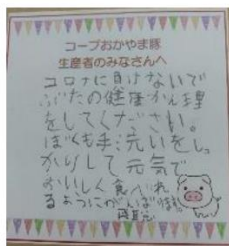 コープおかやま豚
生産者のみなさんへ
コロナに負けないで
ぶたの健康かん理
をしてください。
ぼくも手洗いをしっ
かりして元気で
おいしく食べれ
るようにがんばります。